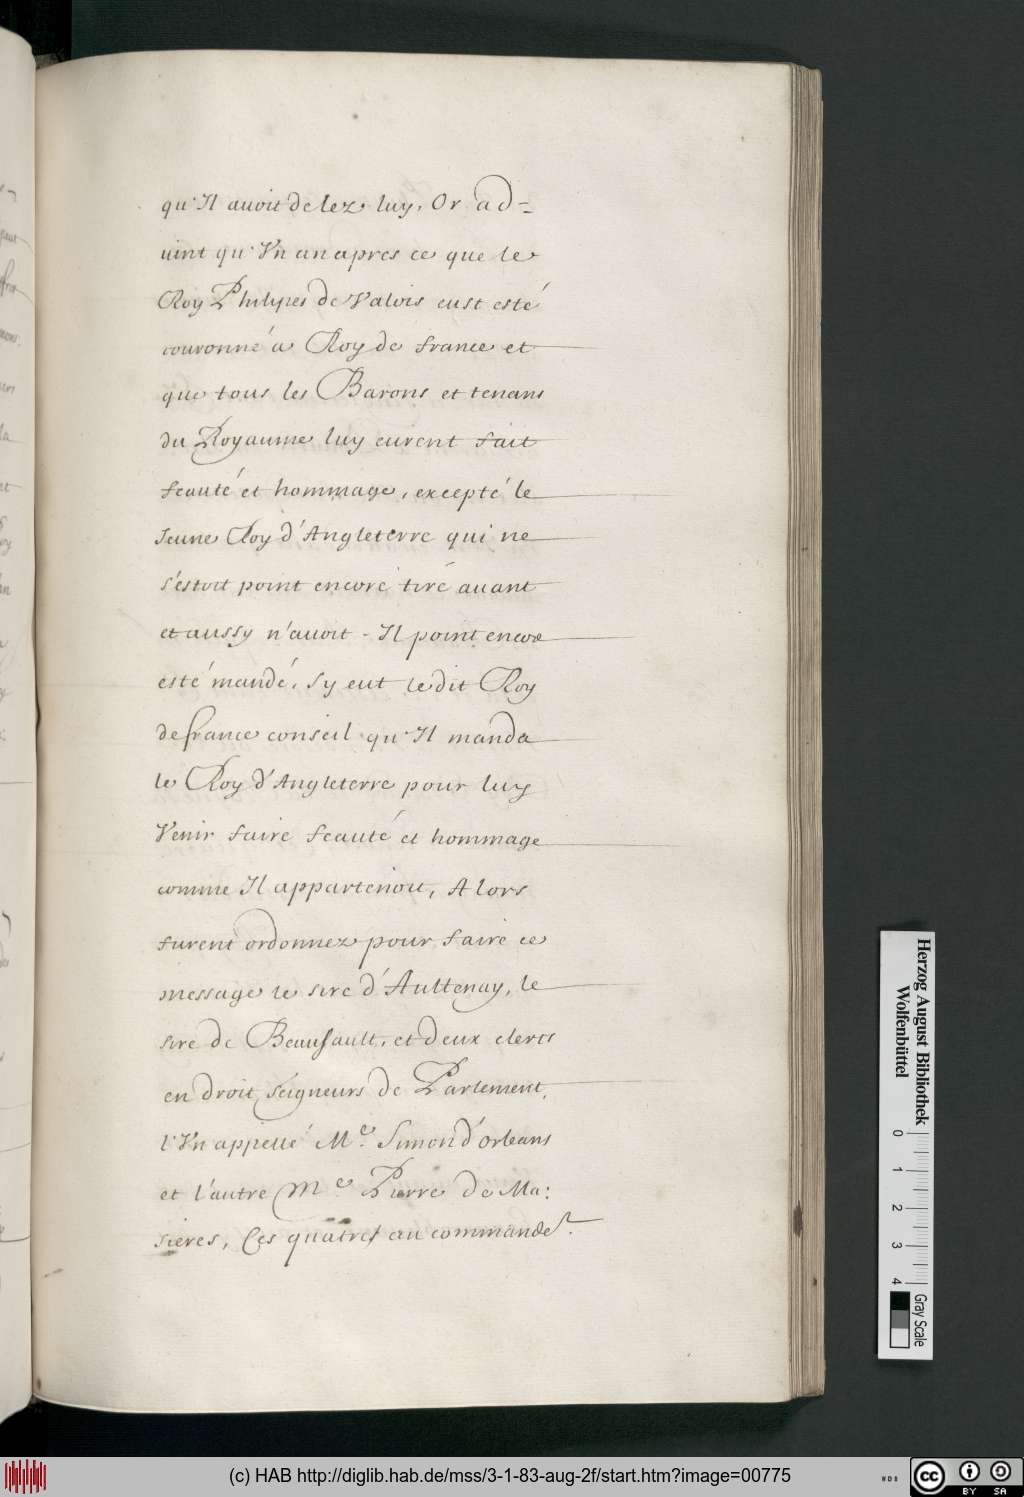 qu'Il auoit de lez luy, Or ad=
uint qu'Vn an apres ce que le
Roy Philypes de Valois eust esté
couronné a Roy de france et
que tous les Barons et tenans
du Royaume luy eurent fait
feauté et hommage, excepté le
Jeune Roy d'Angleterre qui ne
s'estoit point encore tiré auant
et aussy n'auoit - Il point encore
esté mandé, sy eut le dit Roy
de france conseil qu'Il manda
le Roy d'Angleterre pour luy
Venir faire feauté et hommage
comme Il appartenoit, Alors
furent ordonnez pour faire ce
message le sire d'Aultenay, le
sire de Beausault, et deux clercs
en droit, seigneurs de Parlement,
l'Vn appellé Me. Simon d'orleans
et l'autre Me. Pierre de Ma:
sieres, Ces quatres au commande
Herzog August Bibliothek
Wolfenbüttel
0 1 2 3 4
Gray Scale
(c) HAB http://diglib.hab.de/mss/3-1-83-aug-2f/start.htm?image=00775
WDB
cc BY SA